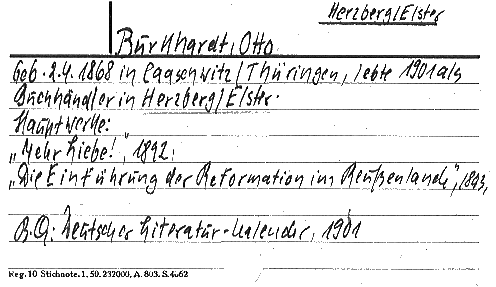 Herzberg/Elster
Burkhardt, Otto
Geb. 2.4. 1868 in Caaschwitz/Thüringen, lebte 1901 als
Buchhändler in Herzberg/Elster.
Hauptwerke:
„Mehr Liebe!", 1892;
„Die Einführung der Reformation im Reußenlande", 1893,
B.Q: Deutscher Literatur-Kalender, 1901
Reg. 10 Stichnote. 1. 50. 232000, A. 803. S. 4062